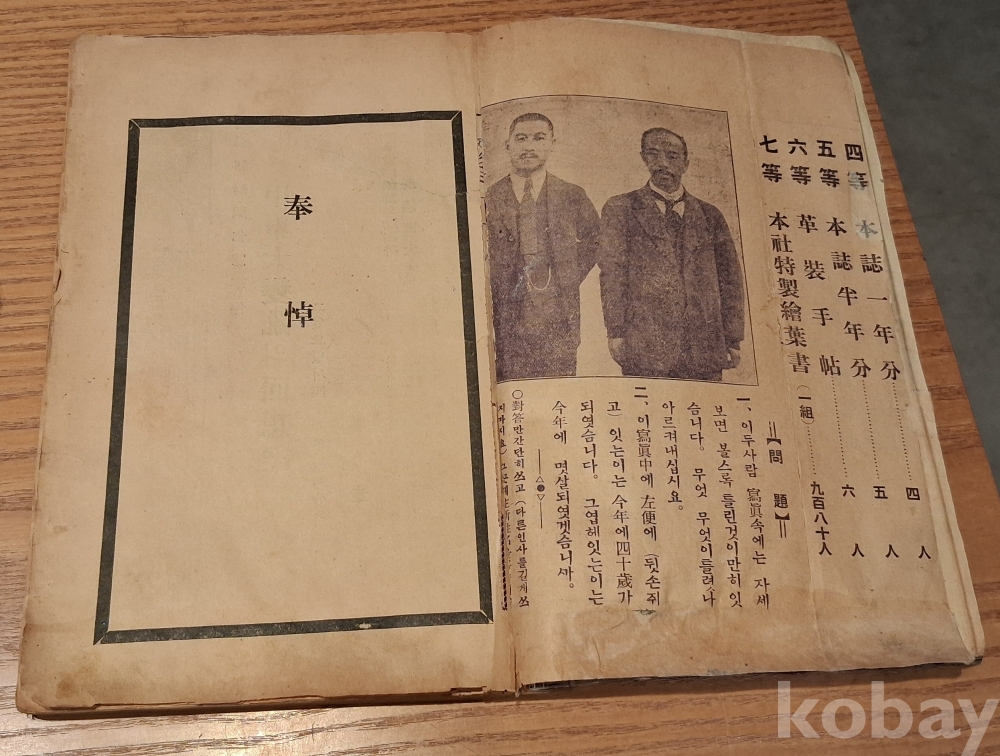 四等 本誌一年分………四人
五等 本誌半年分………五人
六等 革裝手帖………六人
七等 本社特製繪葉書(一組)………九百八十人
=【問題】=
一、이두사람 寫眞속에는 자세
보면 볼스록 틀린것이만히잇
슴니다。무엇 무엇이틀렷나
아르켜내십시요。
二、이寫眞中에 左便에 (뒷손쥐
고) 잇는이는 今年에四十歲가
되엿슴니다。그엽헤잇는이는
今年에 몃살되엿겟슴니까。
○對答만간단히쓰고 (다른인사를길게쓰
지마시요)
奉悼
kobay